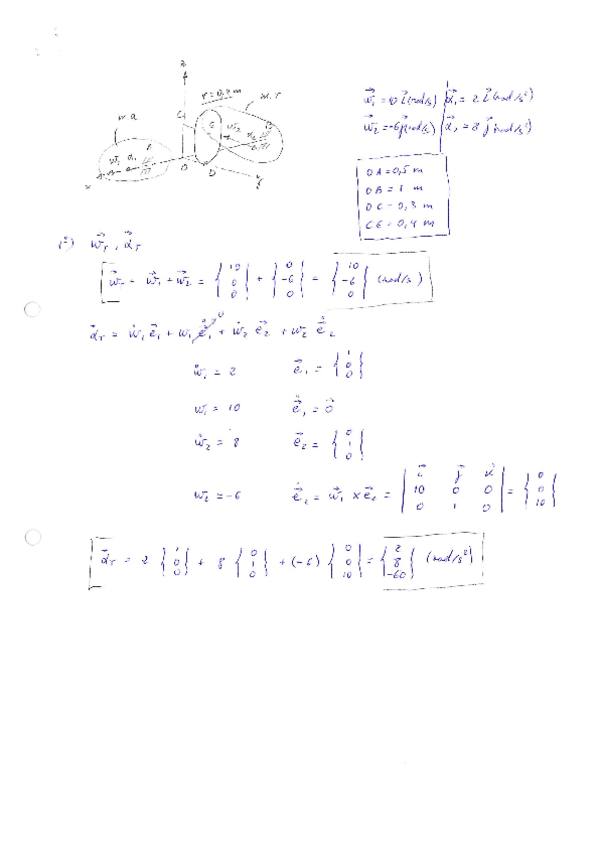 z
r=0,2 m
m.r
m.a
x
y
D
w⃗₁ = 10 i⃗ (rad/s) α⃗₁ = 2 i⃗ (rad/s²)
w⃗₂ = -6 j⃗ (rad/s) α⃗₂ = 8 j⃗ (rad/s²)
OA = 0,5 m
OB = 1 m
OC = 0,3 m
CE = 0,4 m
1º) w⃗T , α⃗T
w⃗T = w⃗₁ + w⃗₂ = {10 0 0} + {0 -6 0} = {10 -6 0} (rad/s)
α⃗T = ẇ₁ e⃗₁ + w₁ ė⃗₁ 0 + ẇ₂ e⃗₂ + w₂ ė⃗₂
ẇ₁ = 2 e⃗₁ = {1 0 0}
w₁ = 10 ė⃗₁ = 0⃗
ẇ₂ = 8 e⃗₂ = {0 1 0}
w₂ = -6 ė⃗₂ = w⃗₁ x e⃗₂ = | i⃗ j⃗ k⃗ 10 0 0 0 1 0 | = {0 0 10}
α⃗T = 2 {1 0 0} + 8 {0 1 0} + (-6) {0 0 10} = {2 8 -60} (rad/s²)